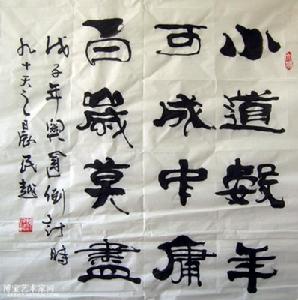 小道數年
可成中庸
百歲莫盡
戊子年奥运倒计時
九十天之晨民越
博宝艺术家网